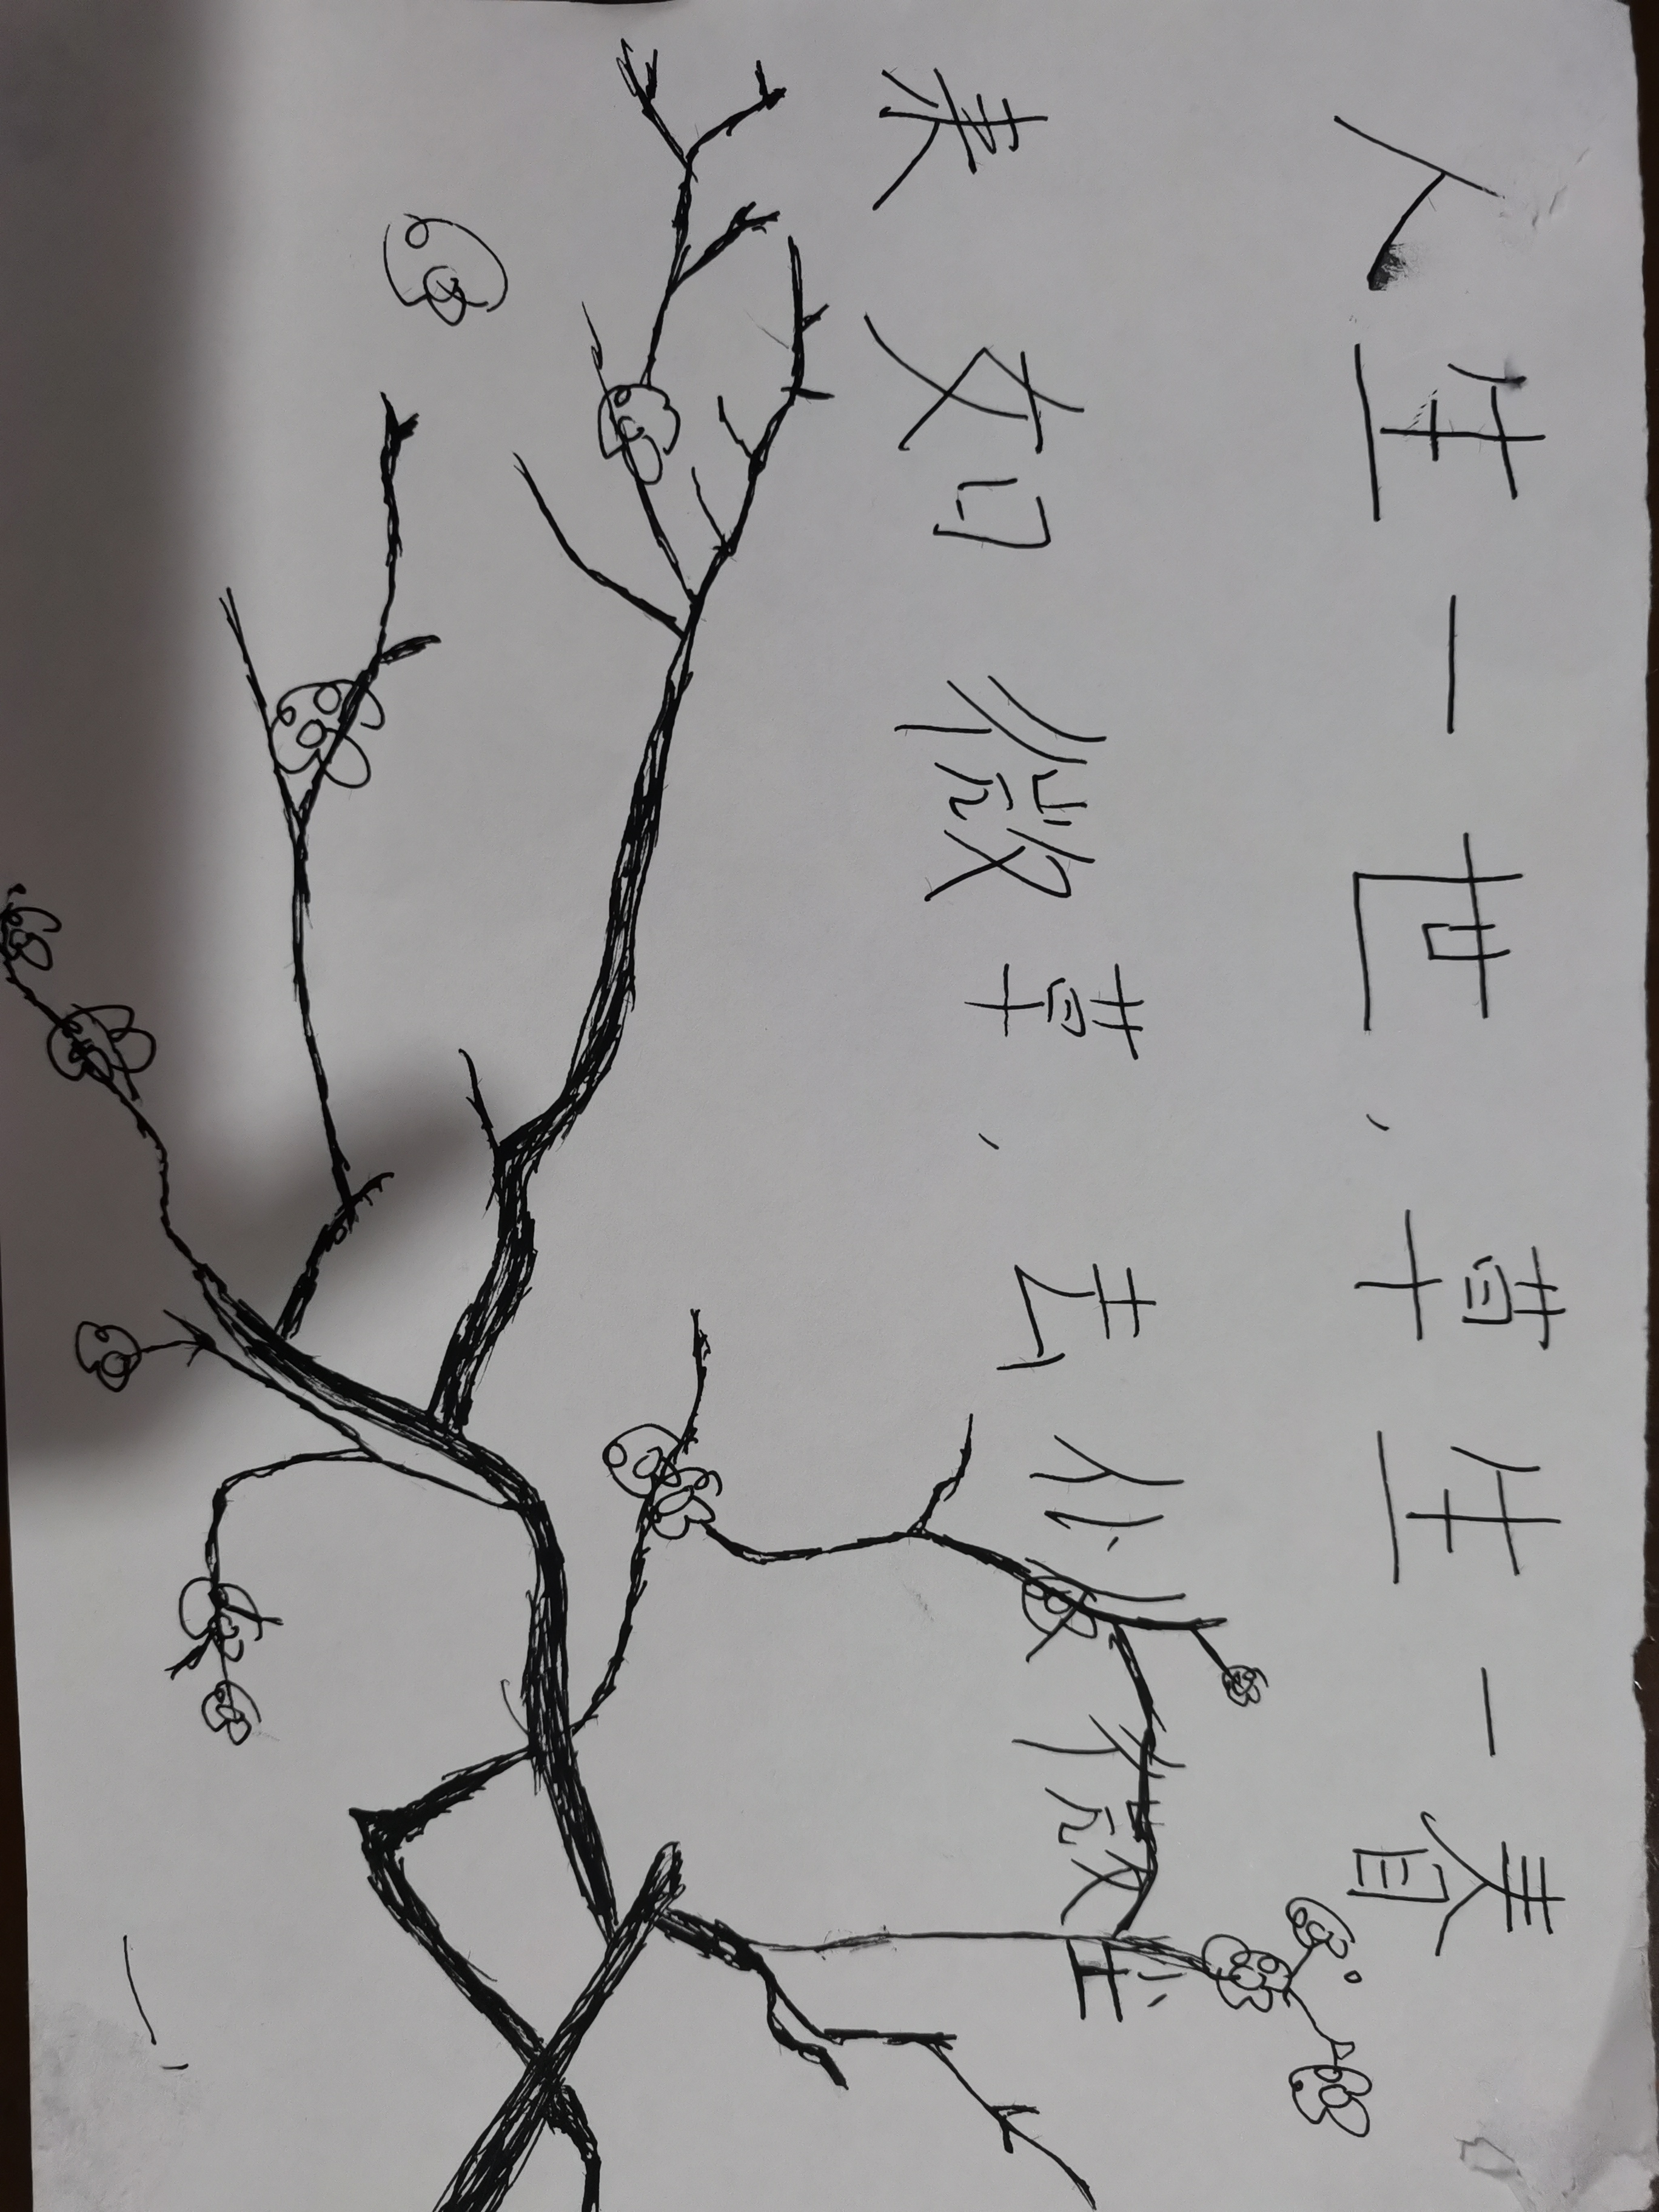 人生一世、草生一春
来如微草、去似微尘